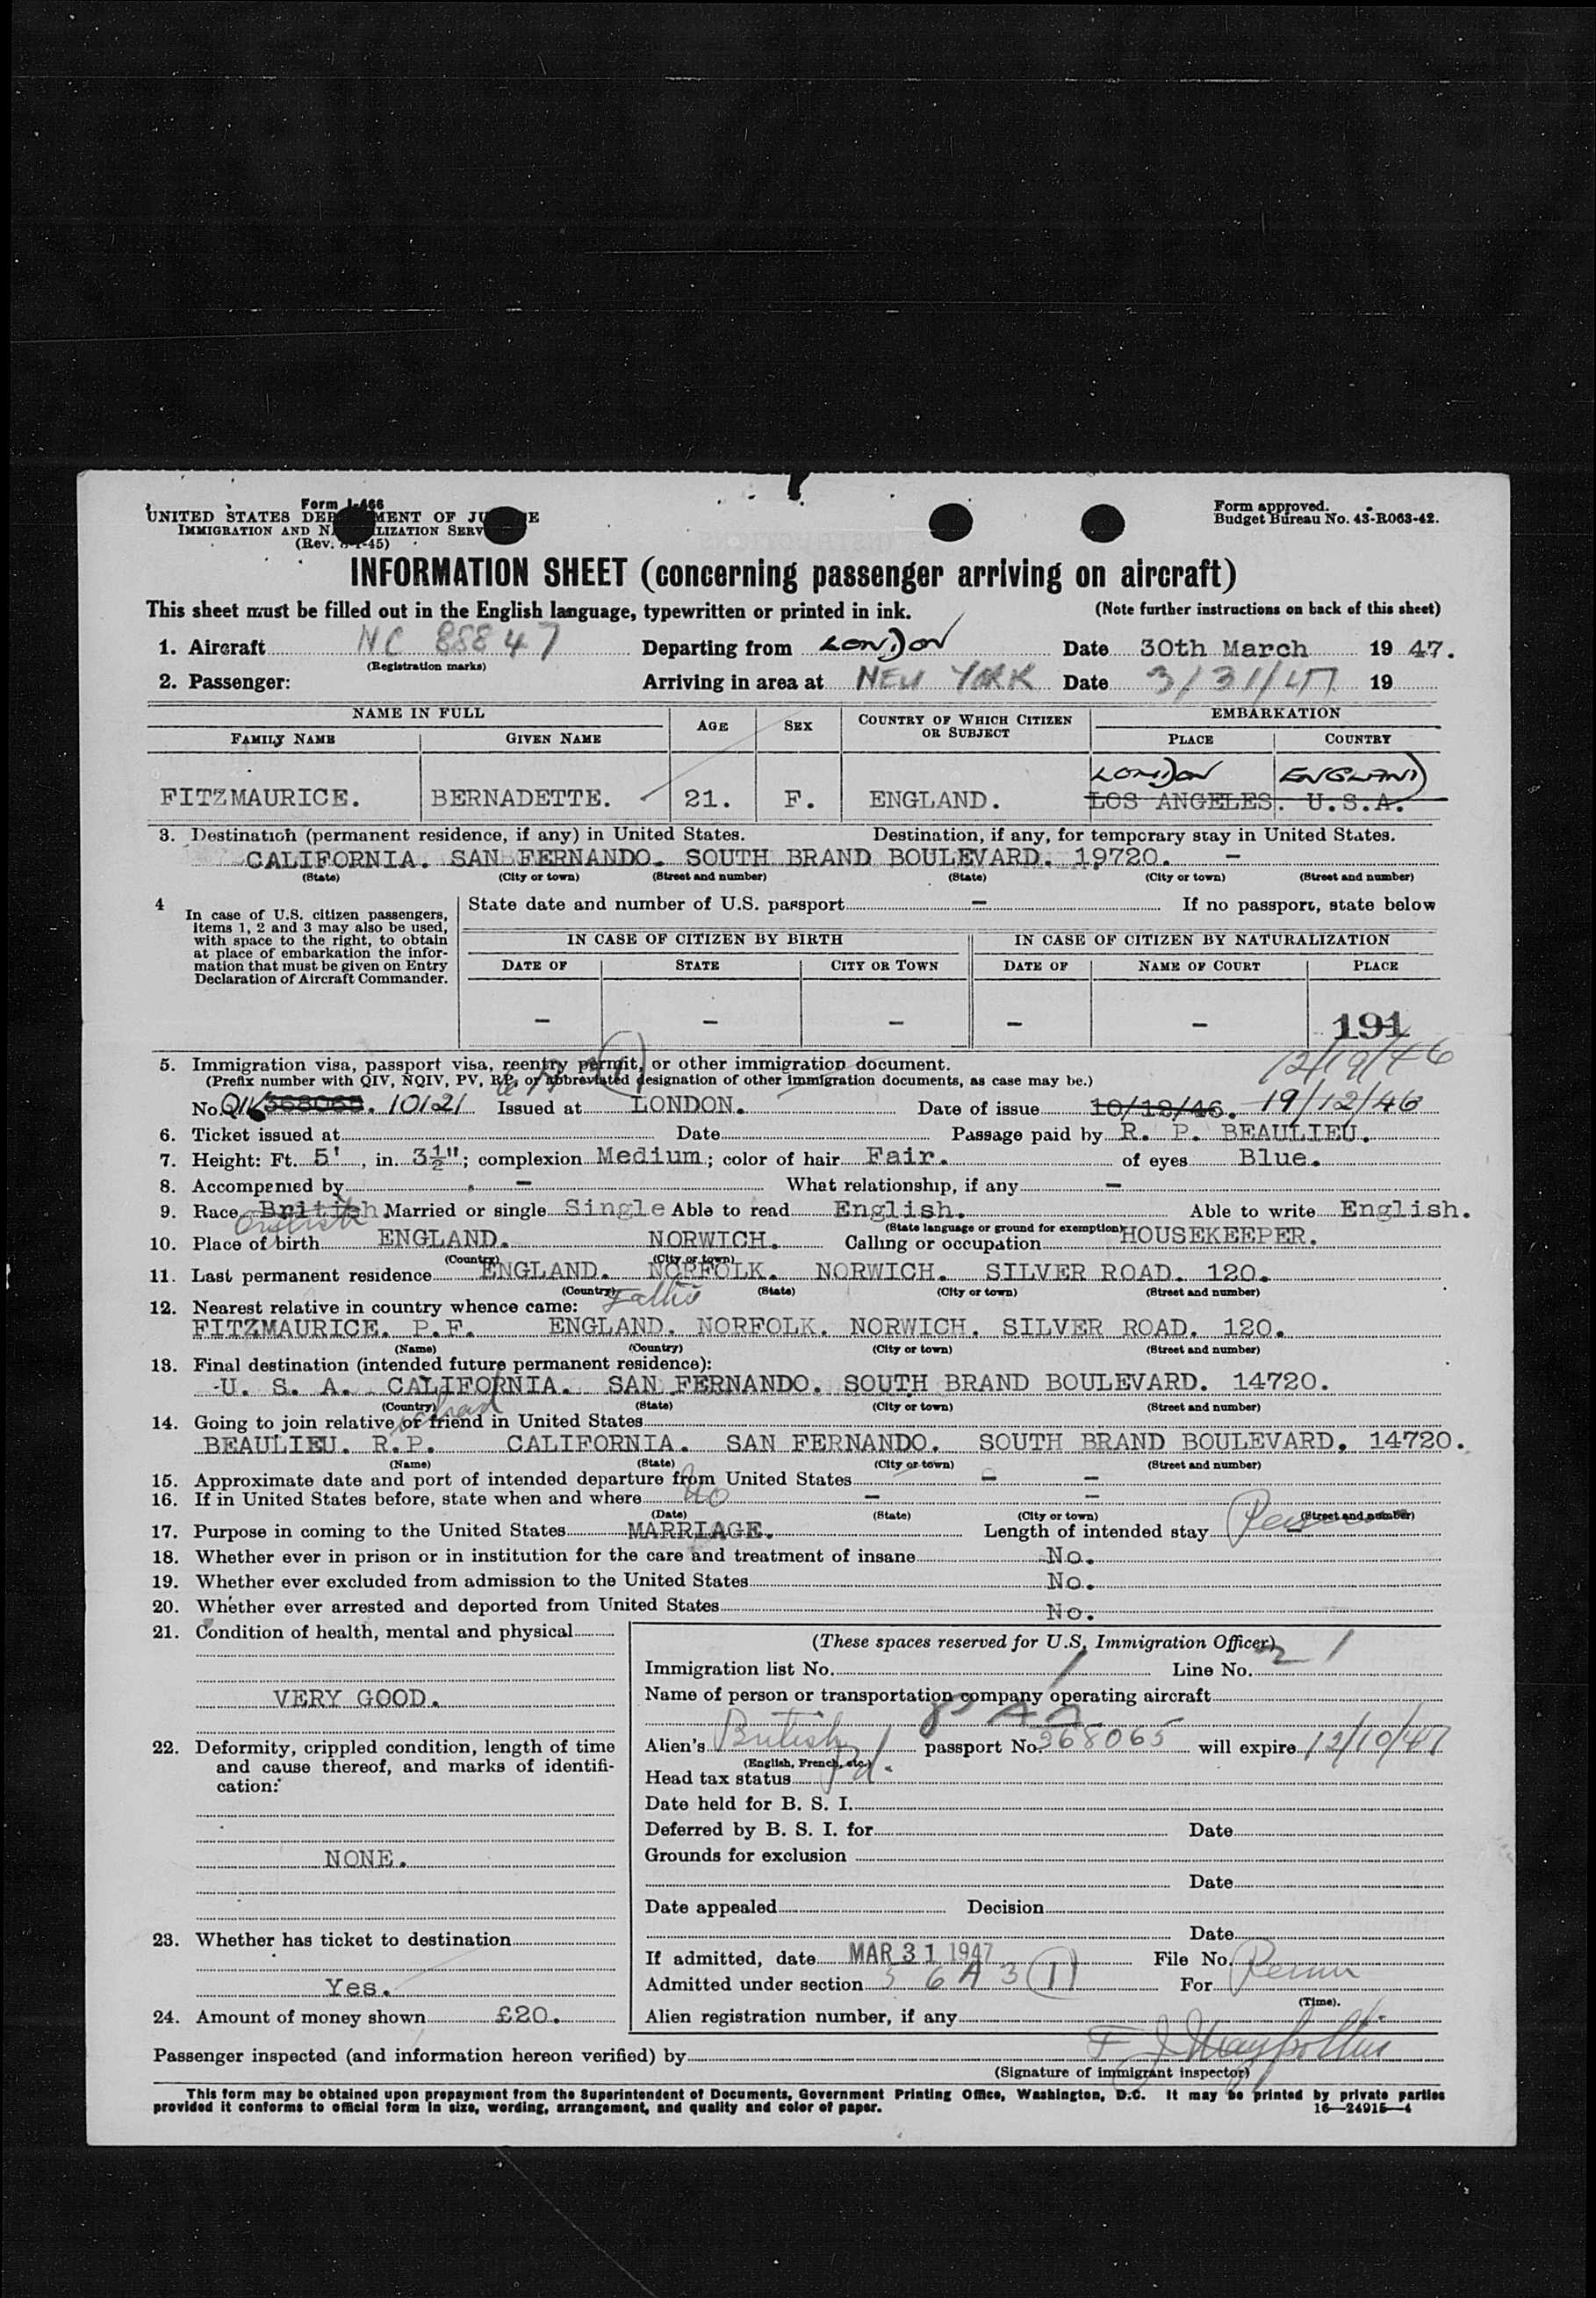 Form I-466
UNITED STATES DEPARTMENT OF JUSTICE
IMMIGRATION AND NATURALIZATION SERVICE
(Rev. 45)
Form approved.
Budget Bureau No. 43-R063-42.
INFORMATION SHEET (concerning passenger arriving on aircraft)
This sheet must be filled out in the English language, typewritten or printed in ink. (Note further instructions on back of this sheet)
1. Aircraft NC 88847 Departing from LONDON Date 30th March 19 47.
(Registration marks)
2. Passenger: Arriving in area at NEW YORK Date 3/31/47 19
NAME IN FULL AGE SEX COUNTRY OF WHICH CITIZEN OR SUBJECT EMBARKATION
FAMILY NAME GIVEN NAME PLACE COUNTRY
LONDON ENGLAND
FITZMAURICE. BERNADETTE. 21. F. ENGLAND. LOS ANGELES. U.S.A.
3. Destination (permanent residence, if any) in United States. Destination, if any, for temporary stay in United States.
CALIFORNIA. SAN FERNANDO. SOUTH BRAND BOULEVARD. 19720. –
(State) (City or town) (Street and number) (State) (City or town) (Street and number)
4 In case of U.S. citizen passengers, items 1, 2 and 3 may also be used, with space to the right, to obtain at place of embarkation the information that must be given on Entry Declaration of Aircraft Commander.
State date and number of U.S. passport – If no passport, state below
IN CASE OF CITIZEN BY BIRTH IN CASE OF CITIZEN BY NATURALIZATION
DATE OF STATE CITY OR TOWN DATE OF NAME OF COURT PLACE
– – – – – 191
5. Immigration visa, passport visa, reentry permit, or other immigration document. 12/19/46
(Prefix number with QIV, NQIV, PV, RP, or abbreviated designation of other immigration documents, as case may be.)
No. QIV 368065. 10121 Issued at LONDON. Date of issue 10/12/46. 19/12/46
6. Ticket issued at Date Passage paid by R. P. BEAULIEU.
7. Height: Ft. 5', in. 3½"; complexion Medium; color of hair Fair. of eyes Blue.
8. Accompanied by – What relationship, if any –
9. Race British English Married or single Single Able to read English. Able to write English.
(State language or ground for exemption)
10. Place of birth ENGLAND. NORWICH. Calling or occupation HOUSEKEEPER.
(Country) (City or town)
11. Last permanent residence ENGLAND. NORFOLK. NORWICH. SILVER ROAD. 120.
(Country) (State) (City or town) (Street and number)
12. Nearest relative in country whence came: Father
FITZMAURICE. P.F. ENGLAND. NORFOLK. NORWICH. SILVER ROAD. 120.
(Name) (Country) (City or town) (Street and number)
13. Final destination (intended future permanent residence):
U. S. A. CALIFORNIA. SAN FERNANDO. SOUTH BRAND BOULEVARD. 14720.
(Country) (State) (City or town) (Street and number)
14. Going to join relative or friend in United States
BEAULIEU. R.P. CALIFORNIA. SAN FERNANDO. SOUTH BRAND BOULEVARD. 14720.
(Name) (State) (City or town) (Street and number)
15. Approximate date and port of intended departure from United States – –
16. If in United States before, state when and where No – –
(Date) (State) (City or town) (Street and number)
17. Purpose in coming to the United States MARRIAGE. Length of intended stay
18. Whether ever in prison or in institution for the care and treatment of insane No.
19. Whether ever excluded from admission to the United States No.
20. Whether ever arrested and deported from United States No.
21. Condition of health, mental and physical
VERY GOOD.
22. Deformity, crippled condition, length of time
and cause thereof, and marks of identifi-
cation:
NONE.
23. Whether has ticket to destination
Yes.
24. Amount of money shown £20.
(These spaces reserved for U.S. Immigration Officer)
Immigration list No. 1 Line No. 1
Name of person or transportation company operating aircraft
PAA
Alien's British passport No. 368065 will expire 12/10/47
(English, French, etc.)
Head tax status Pd.
Date held for B. S. I.
Deferred by B. S. I. for Date
Grounds for exclusion
Date
Date appealed Decision
Date
If admitted, date MAR 31 1947 File No.
Admitted under section 3 6A3(1) For Perm
(Time).
Alien registration number, if any
Passenger inspected (and information hereon verified) by
(Signature of immigrant inspector)
This form may be obtained upon prepayment from the Superintendent of Documents, Government Printing Office, Washington, D.C. It may be printed by private parties
provided it conforms to official form in size, wording, arrangement, and quality and color of paper. 16—24915—4